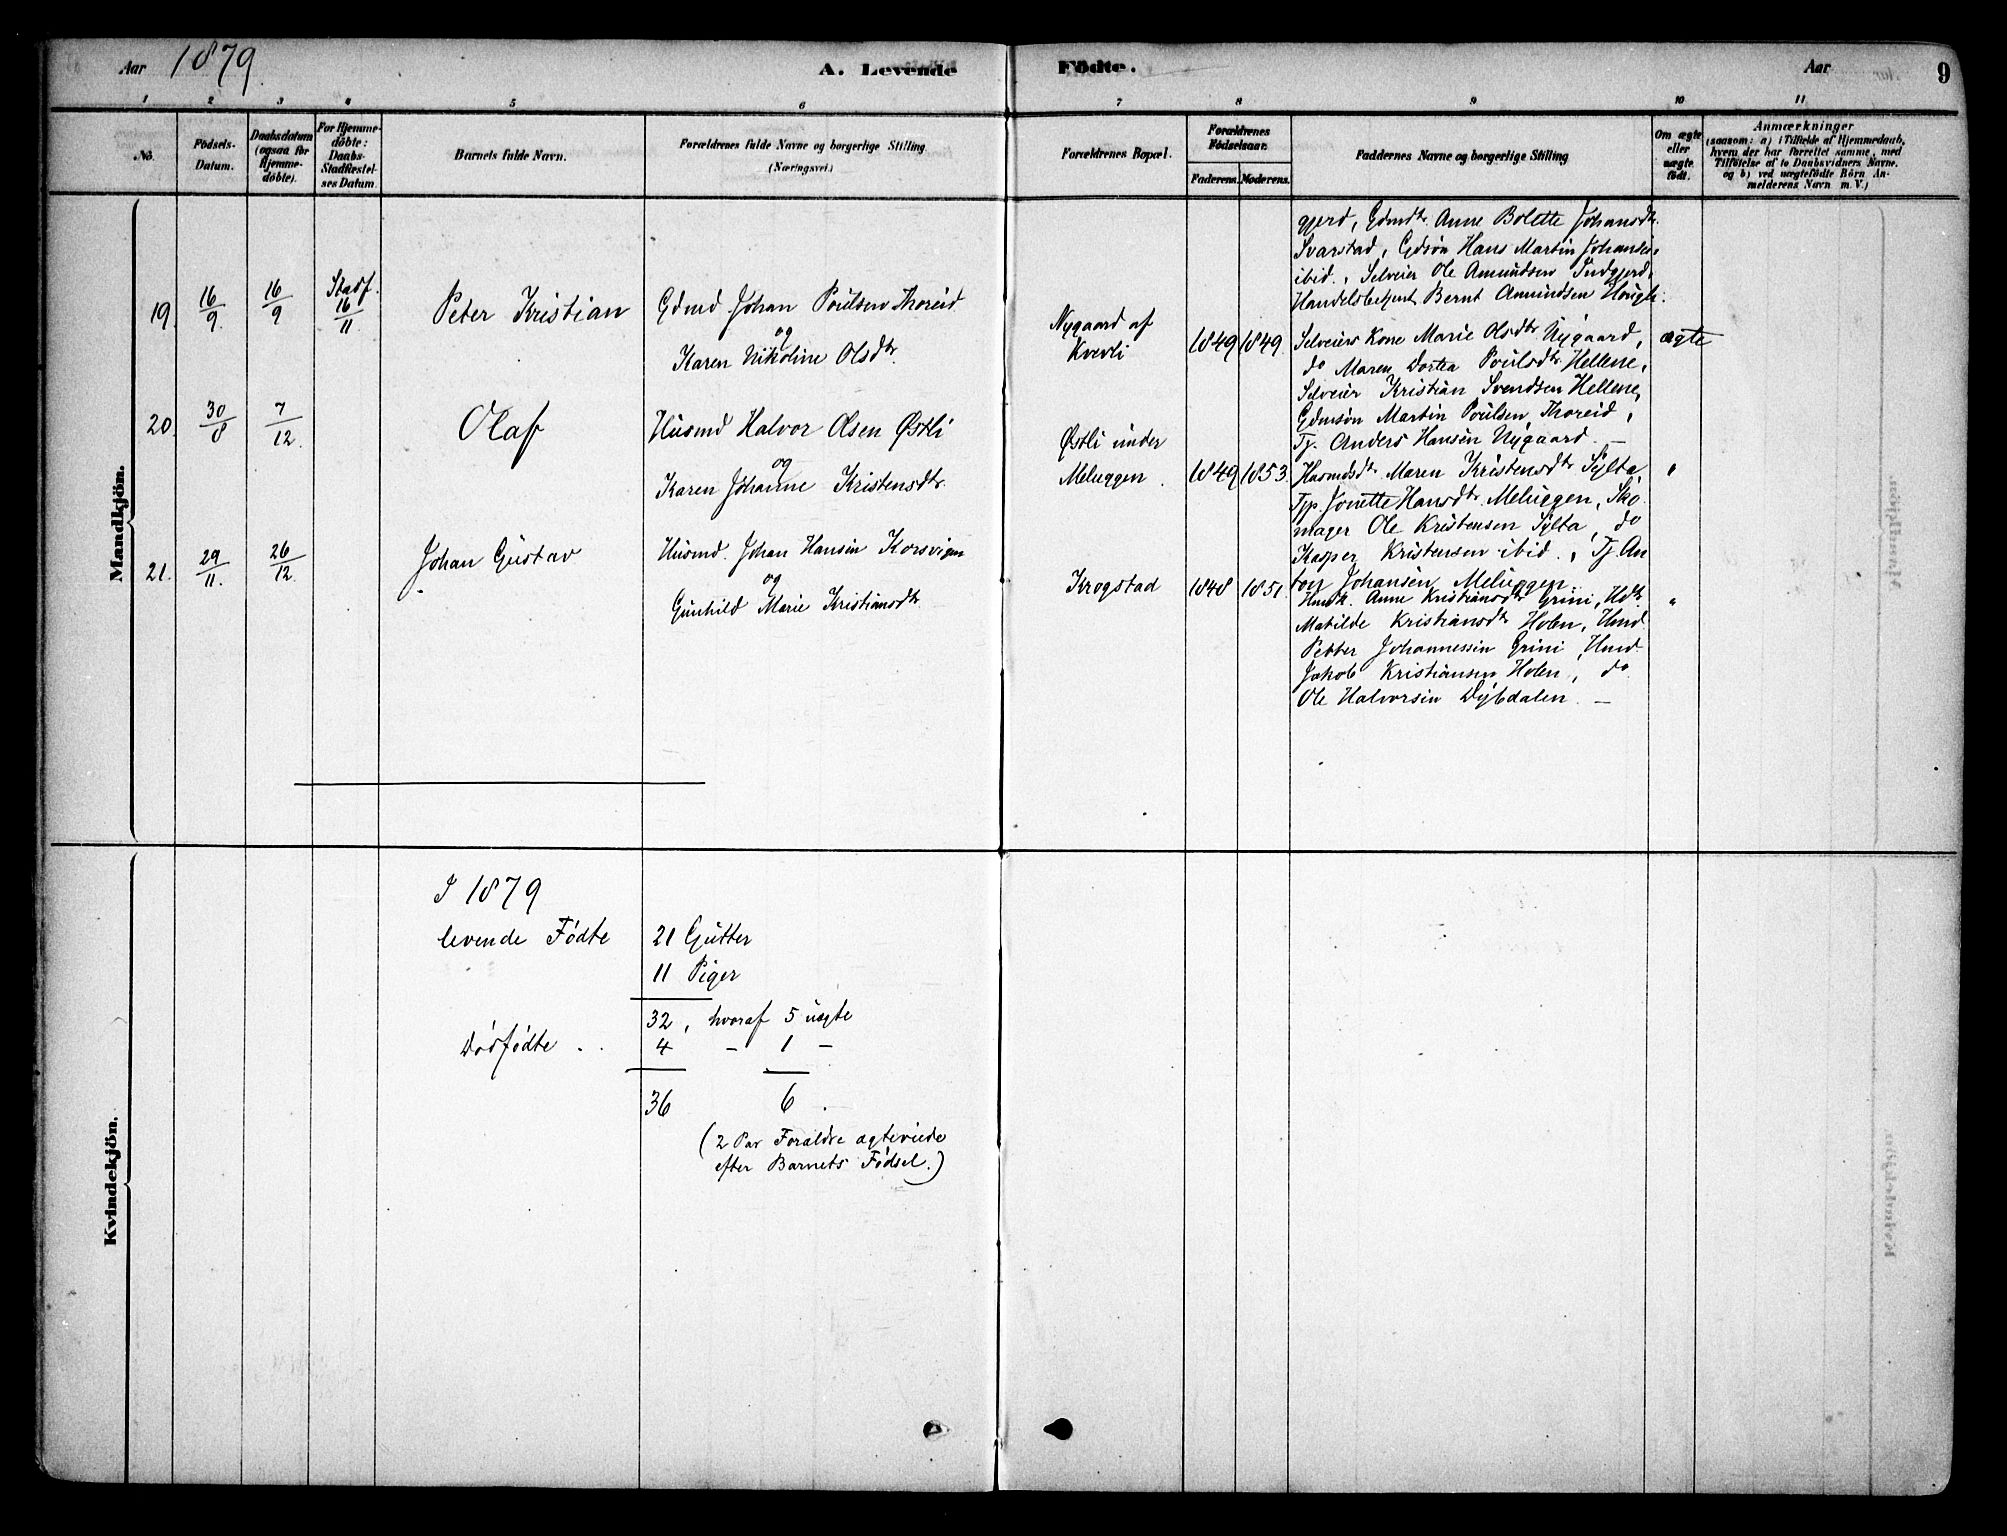 Aar 1879.
A. Levende Födte.
Aar
9
1 2 3 4 5 6 7 8 9 10 11
No.
Födsels-Datum.
Daabsdatum (ogsaa for Hjemme-döbte).
For Hjemme-döbte: Daabs-Stadfæstel-ses Datum.
Barnets fulde Navn.
Forældrenes fulde Navne og borgerlige Stilling (Næringsvei.)
Forældrenes Bopæl.
Forældrenes Födselsaar.
Faderens. Moderens.
Faddernes Navne og borgerlige Stilling
Om ægte eller uægte födt.
Anmærkninger
(saasom: a) i Tilfælde af Hjemmedaab,
hvem der har forrettet samme, med
Tilföielse af to Daabsvidners Navne,
og b) ved uægtefödte Börn An-
melderens Navn m. V.)
Mandkjön.
gjerd, Gdmdtr Anne Bolette Johansdtr
Svarstad, Gdsøn Hans Martin Johansen
ibid., Selveier Ole Amundsen Indgjerd,
Handelsbetjent Bernt Amundsen Hough.
19. 16/9. 16/9 Stadf. 16/11 Peter Kristian
Gdmd Johan Poulsen Thoreid
og
Karen Nikoline Olsdtr.
Nygaard af
Kverli
1849 1849.
Selveiers Kone Marie Olsdtr Nygaard,
do Maren Dortea Poulsdtr Hellene,
Selveier Kristian Svendsen Hellene,
Gdmsøn Martin Poulsen Thoreid,
Tj. Anders Hansen Nygaard. —
ægte
20. 30/8 7/12. Olaf
Husmd Halvor Olsen Østli
og
Karen Johanne Kristensdtr.
Østli under
Meluggen.
1849 1853.
Husmdsdtr Maren Kristensdtr Sylta
Tjp. Jonette Hansdtr Meluggen, Sko
mager Ole Kristensen Sylta, do
Kasper Kristensen ibid., Tj. An
ton Johansen Meluggen
"
21. 29/11. 26/12. Johan Gustav
Husmd. Johan Hansen Korsvigen
og
Gunhild Marie Kristiansdtr
Krogstad
1848 1851.
Husk. Anne Kristiansdtr Grini, Hdtr
Matilde Kristiansdtr Holen, Husmd
Petter Johannessen Grini, Husmd
Jakob Kristiansen Holen, do
Ole Halvorsen Dybdalen. —
"
Kvindekjön.
I 1879
levende Fødte 21 Gutter
11 Piger
32, hvoraf 5 uægte
Dødfødte . . 4 – 1 –
36 6.
(2 Par Forældre ægteviede
efter Barnets Fødsel.)